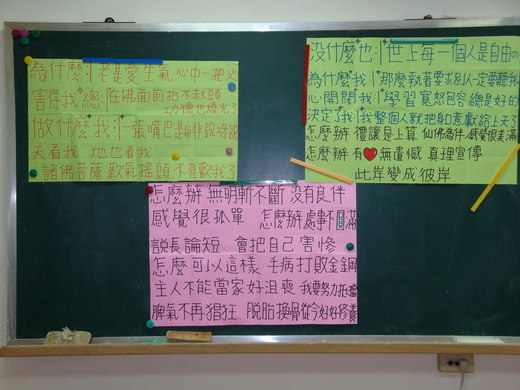 為什麼我老是愛生氣 心中一把火
害得我總在佛面前抬不起頭
功德也燒光了
做什麼我一張嘴巴是非說好說
天看我 地也看我
諸佛菩薩歎氣搖頭不喜歡我了
沒什麼也世上每一個人是自由的
為什麼我那麼執著要求別人一定要聽我
心開開我學習寬恕包容總是好的
決定了我我整個人就把身口意獻給上天了
怎麼辦 禮讓是上算 仙佛為伴 感覺很美滿
怎麼辦 有 無遺憾 真理宣傳
此岸變成彼岸
怎麼辦 無明斬不斷 沒有良伴
感覺很孤單 怎麼辦處事不圓滿
說長論短 會把自己害慘
怎麼可以這樣 毛病打敗金鋼
主人不能當家好沮喪 我要努力抵擋
脾氣不再猖狂 脫胎換骨從今好好修養